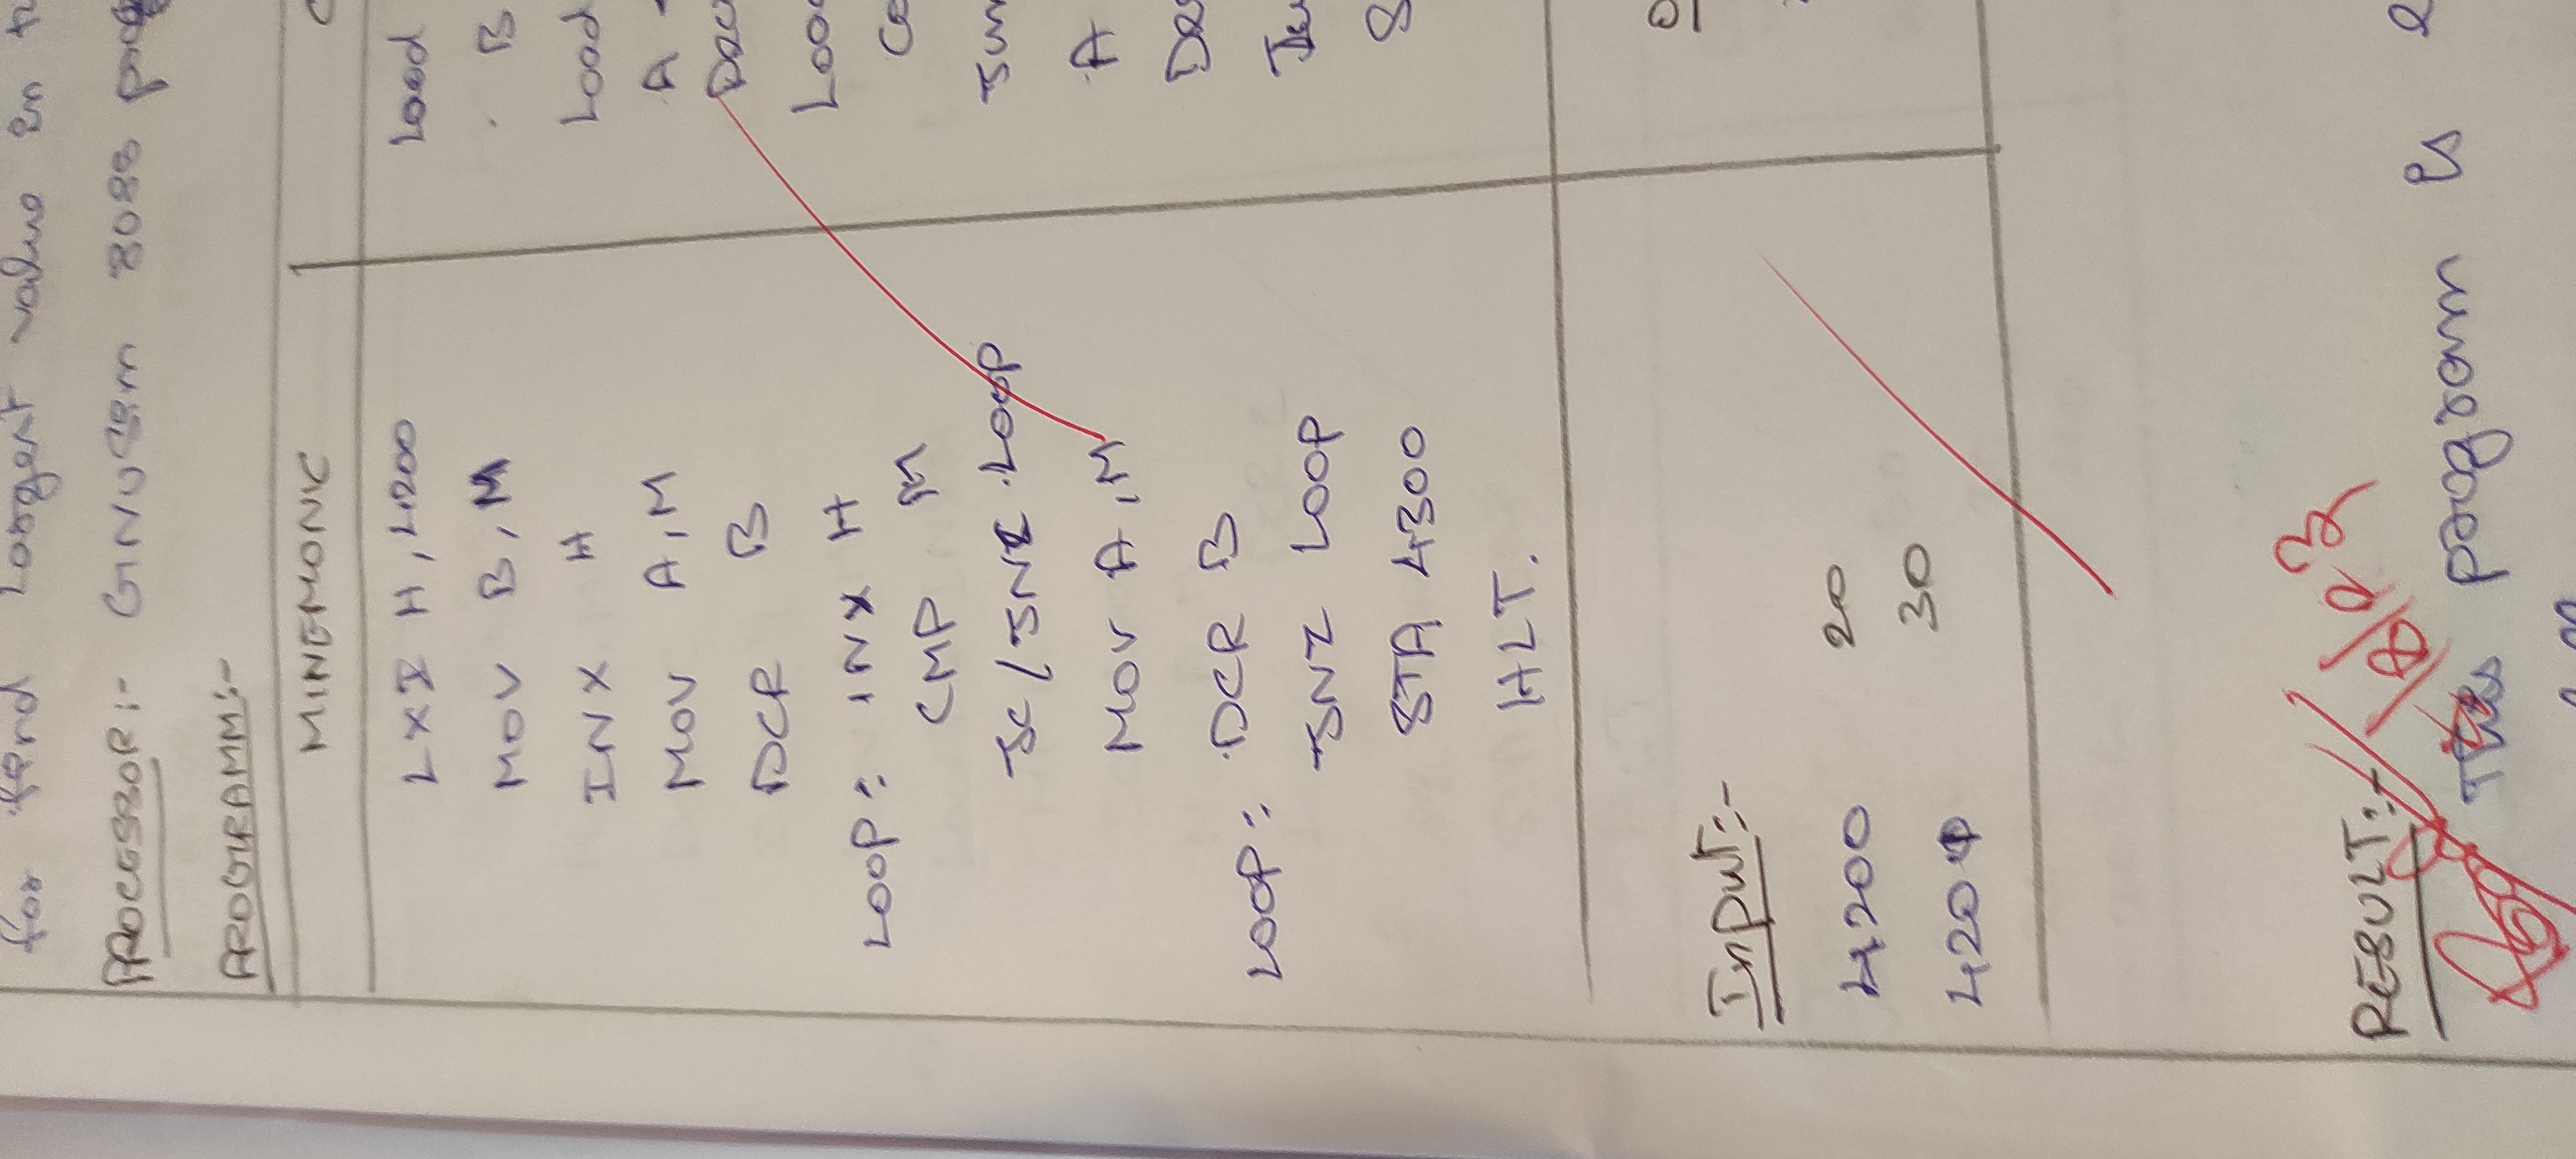 for find Largest value in
PROCESSOR:- GNUSim 8085
PROGRAMM:-
MINEMONIC
LXI H, 4200 Load
MOV B, M B
INX H Load
MOV A, M A
DCR B
LOOP: INX H
CMP M
JC / JNZ LOOP
MOV A, M A
LOOP: DCR B
JNZ LOOP
STA 4300
HLT.
Input:-
4200 20
4201 30
RESULT:-
This program is